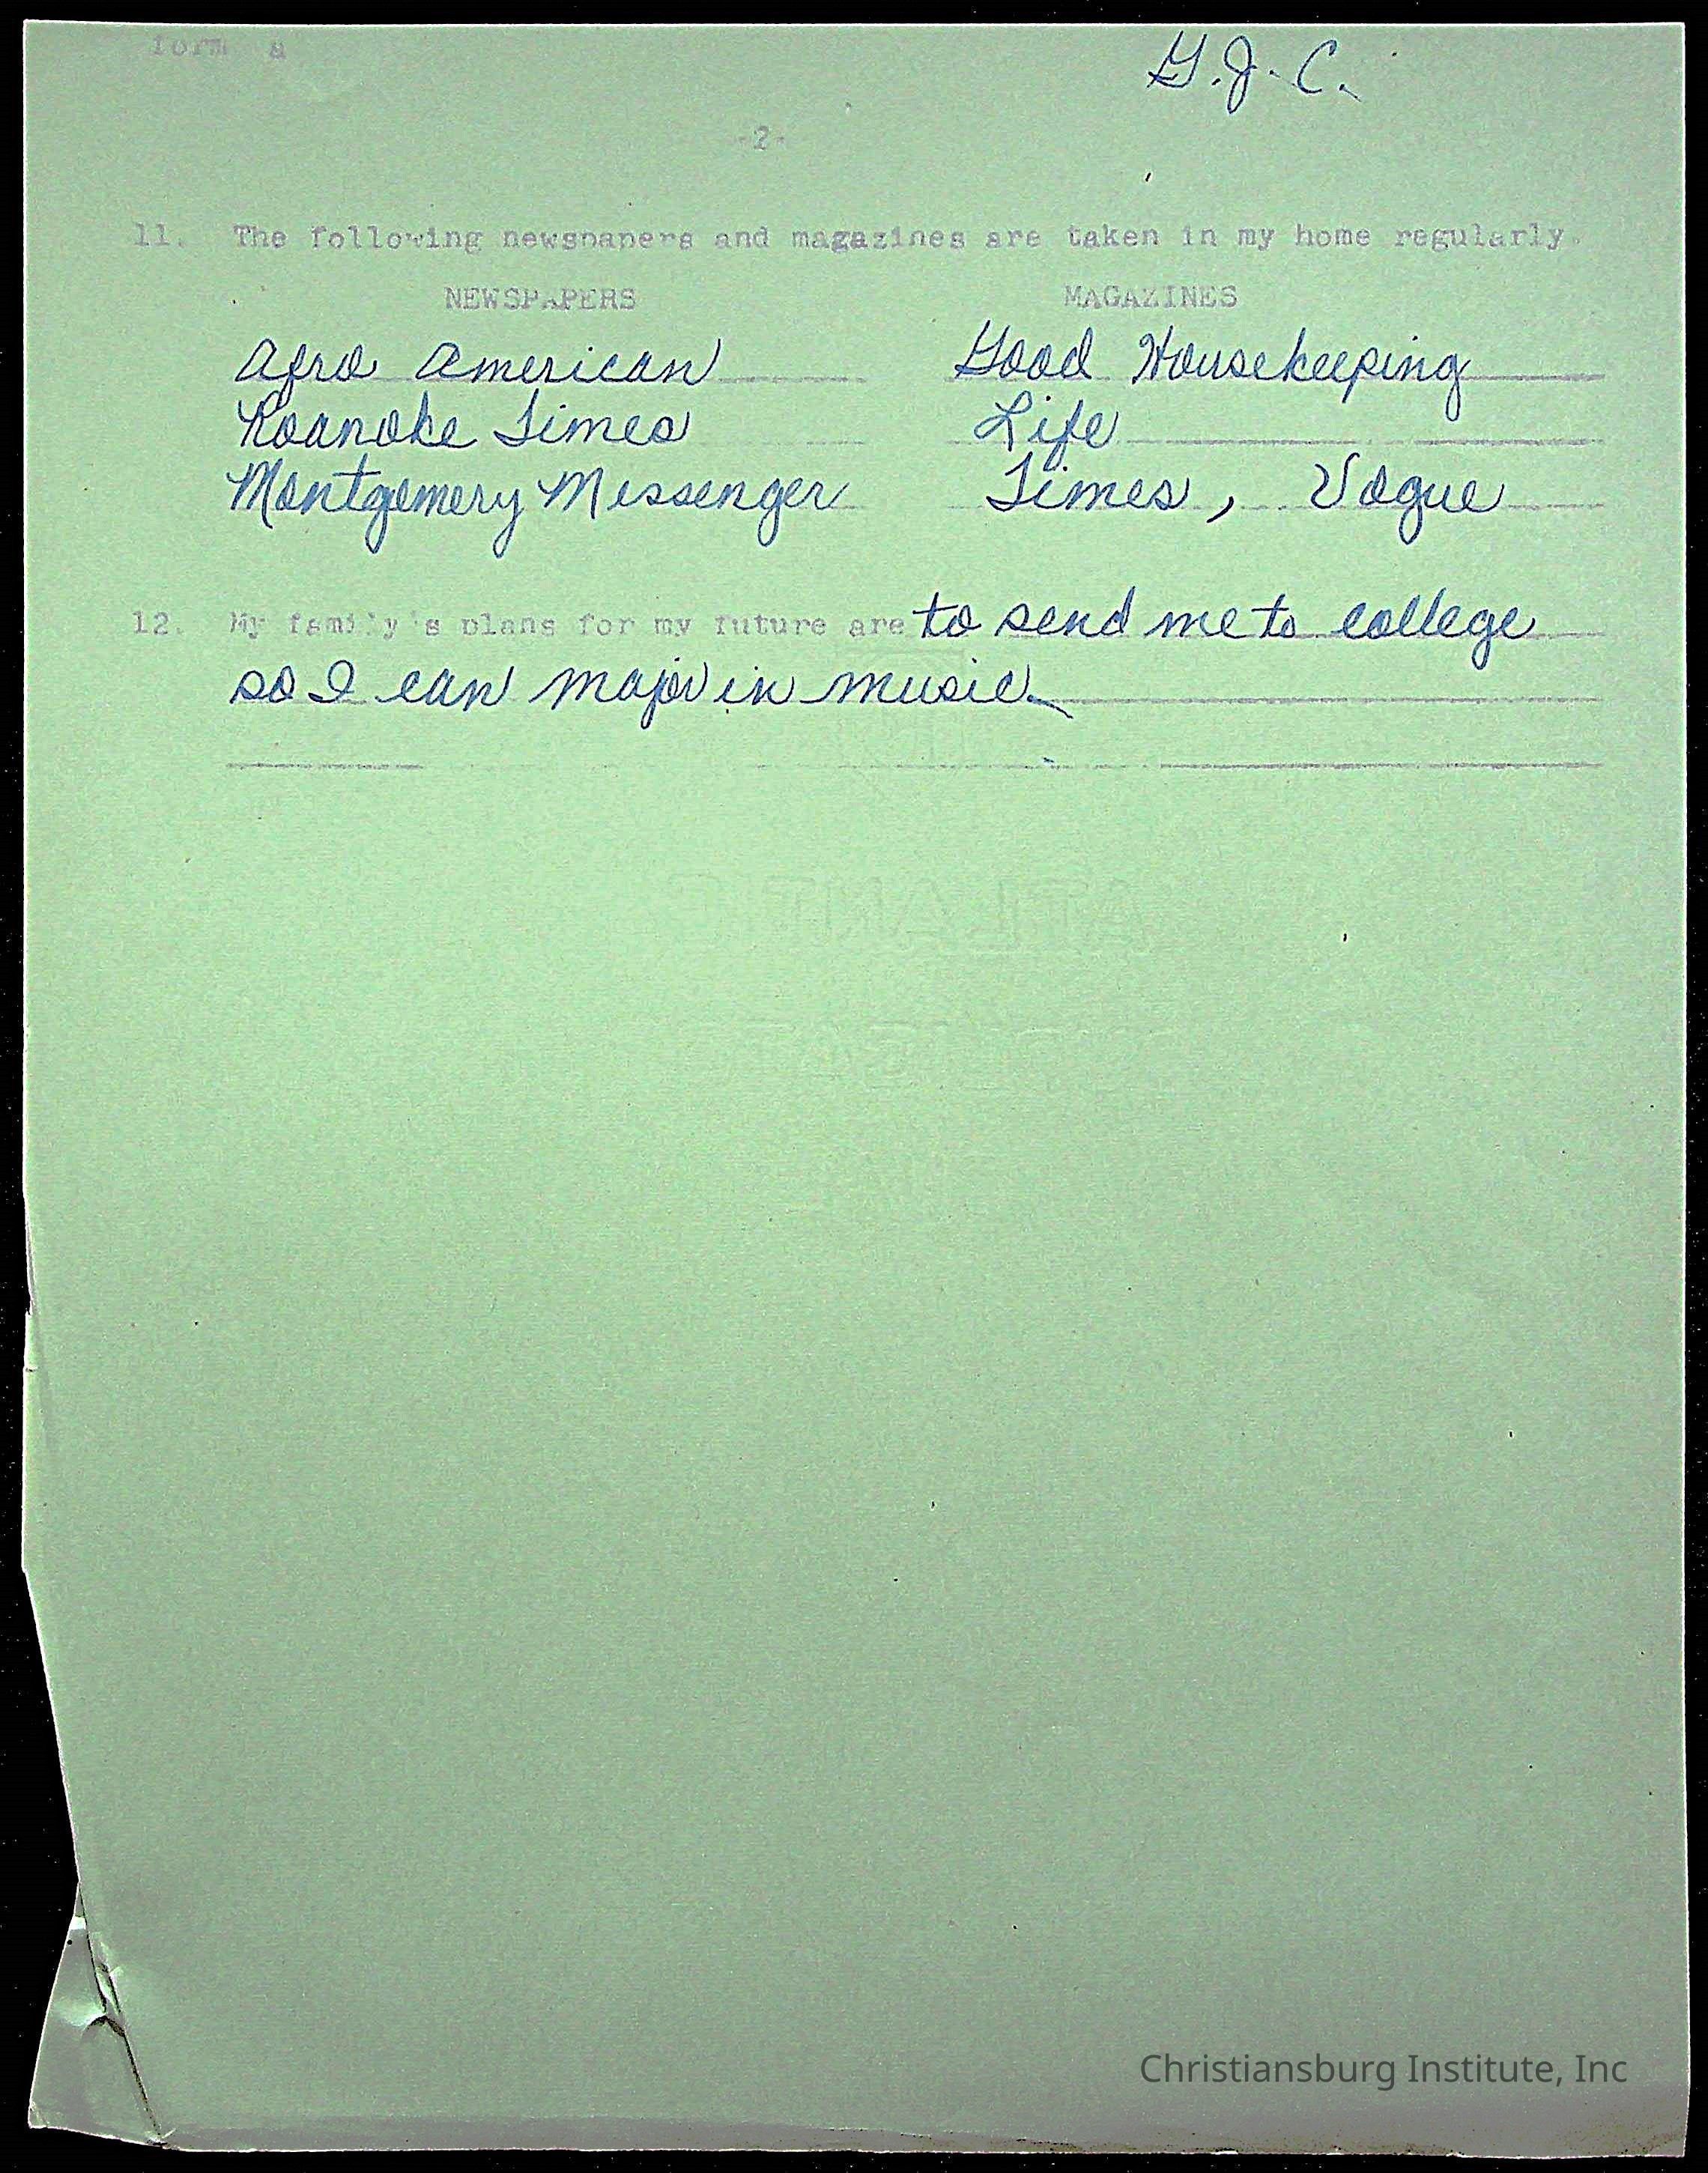 form a
G. J. C.
-2-
11. The following newspapers and magazines are taken in my home regularly.
NEWSPAPERS MAGAZINES
Afro American Good Housekeeping
Roanoke Times Life
Montgomery Messenger Times, Vogue
12. My family's plans for my future are to send me to college
so I can major in music.
ATLANTIC
Christiansburg Institute, Inc